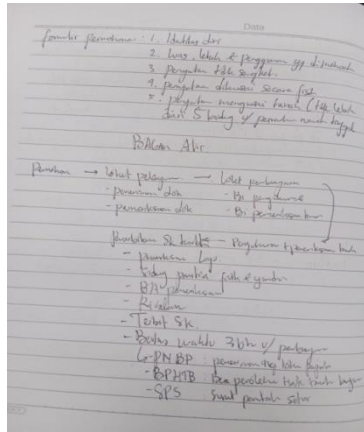 Date
formulir permohonan : 1. Identitas diri
2. Luas, letak & penggunaan yg dimohon
3. Pernyataan tdk sengketa
4. pernyataan dikuasai secara fisik
5. pernyataan menguasai tanah tdk lebih
dari 5 bidang u/ permohonan rumah tinggal
BAGAN Alir
Pemohon → loket pelayanan — loket pembayaran
- penerimaan dok
- pemeriksaan dok
- Bi pengukuran
- Bi pemeriksaan
Penerbitan Sk - Pengukuran & pemeriksaan tanah
- pemeriksaan Lap
- Sidang panitia
- BA pemeriksaan
- Risalah
- Terbit Sk.
- Batas waktu 3 bln u/
PNBP : penerimaan neg bukan pajak
BPHTB : Bea perolehan hak tanah
- SPS : Surat perintah setor